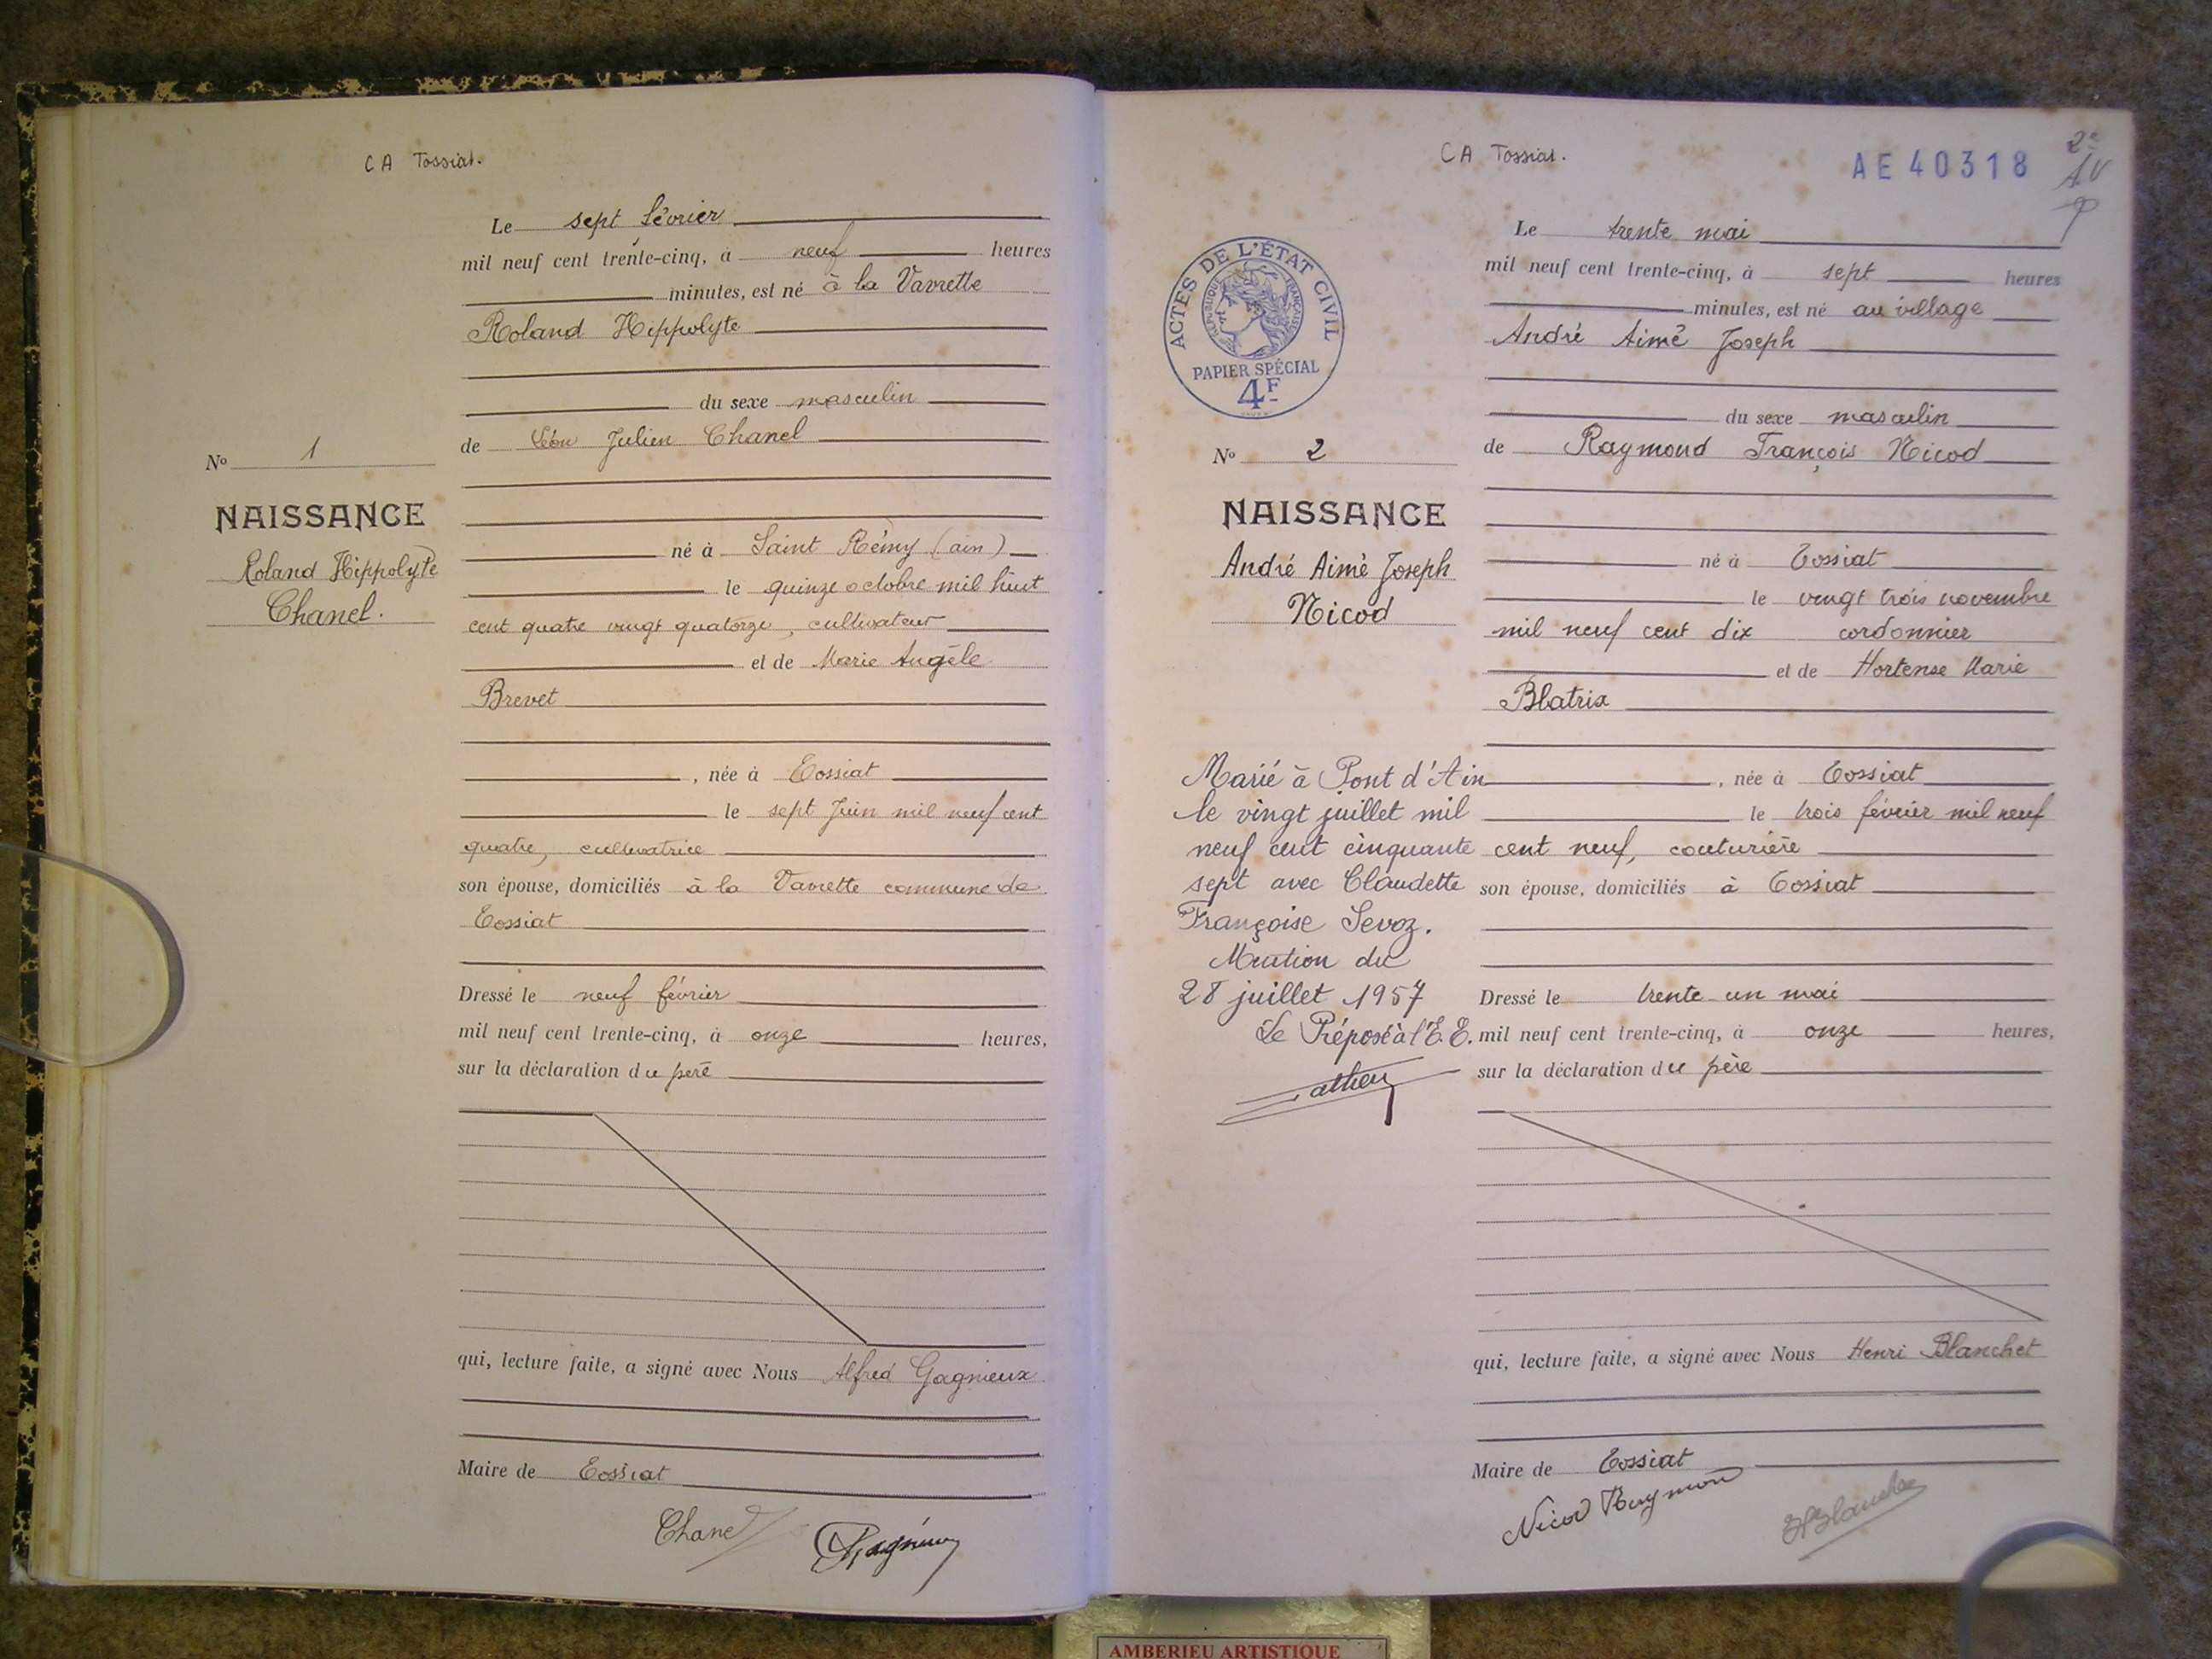 CA Tossiat.
Le sept février
mil neuf cent trente-cinq, à neuf heures
minutes, est né à la Vavrette
Roland Hippolyte
du sexe masculin
de Léon Julien Chanel
No 1
NAISSANCE
Roland Hippolyte
Chanel.
né à Saint Rémy (ain)
le quinze octobre mil huit
cent quatre vingt quatorze, cultivateur
et de Marie Angèle
Brevet
, née à Tossiat
le sept Juin mil neuf cent
quatre, cultivatrice
son épouse, domiciliés à la Vavrette commune de
Tossiat
Dressé le neuf février
mil neuf cent trente-cinq, à onze heures,
sur la déclaration du père
qui, lecture faite, a signé avec Nous Alfred Gagnieux
Maire de Tossiat
Chanel
CA Tossiat.
AE 40318
2e
Le trente mai
mil neuf cent trente-cinq, à sept heures
minutes, est né au village
André Aimé Joseph
du sexe masculin
de Raymond François Nicod
ACTES DE L'ÉTAT CIVIL
RÉPUBLIQUE FRANÇAISE
PAPIER SPÉCIAL
4F
No 2
NAISSANCE
André Aimé Joseph
Nicod
né à Tossiat
le vingt trois novembre
mil neuf cent dix cordonnier
et de Hortense Marie
Blatrix
, née à Tossiat
le trois février mil neuf
cent neuf, couturière
son épouse, domiciliés à Tossiat
Marié à Pont d'Ain
le vingt juillet mil
neuf cent cinquante
sept avec Claudette
Françoise Sevoz.
Mention du
28 juillet 1957
Le Préposé à l'E.C.
Dressé le trente un mai
mil neuf cent trente-cinq, à onze heures,
sur la déclaration du père
qui, lecture faite, a signé avec Nous Henri Blanchet
Maire de Tossiat
Nicod Raymond
HBlanchet
AMBERIEU ARTISTIQUE